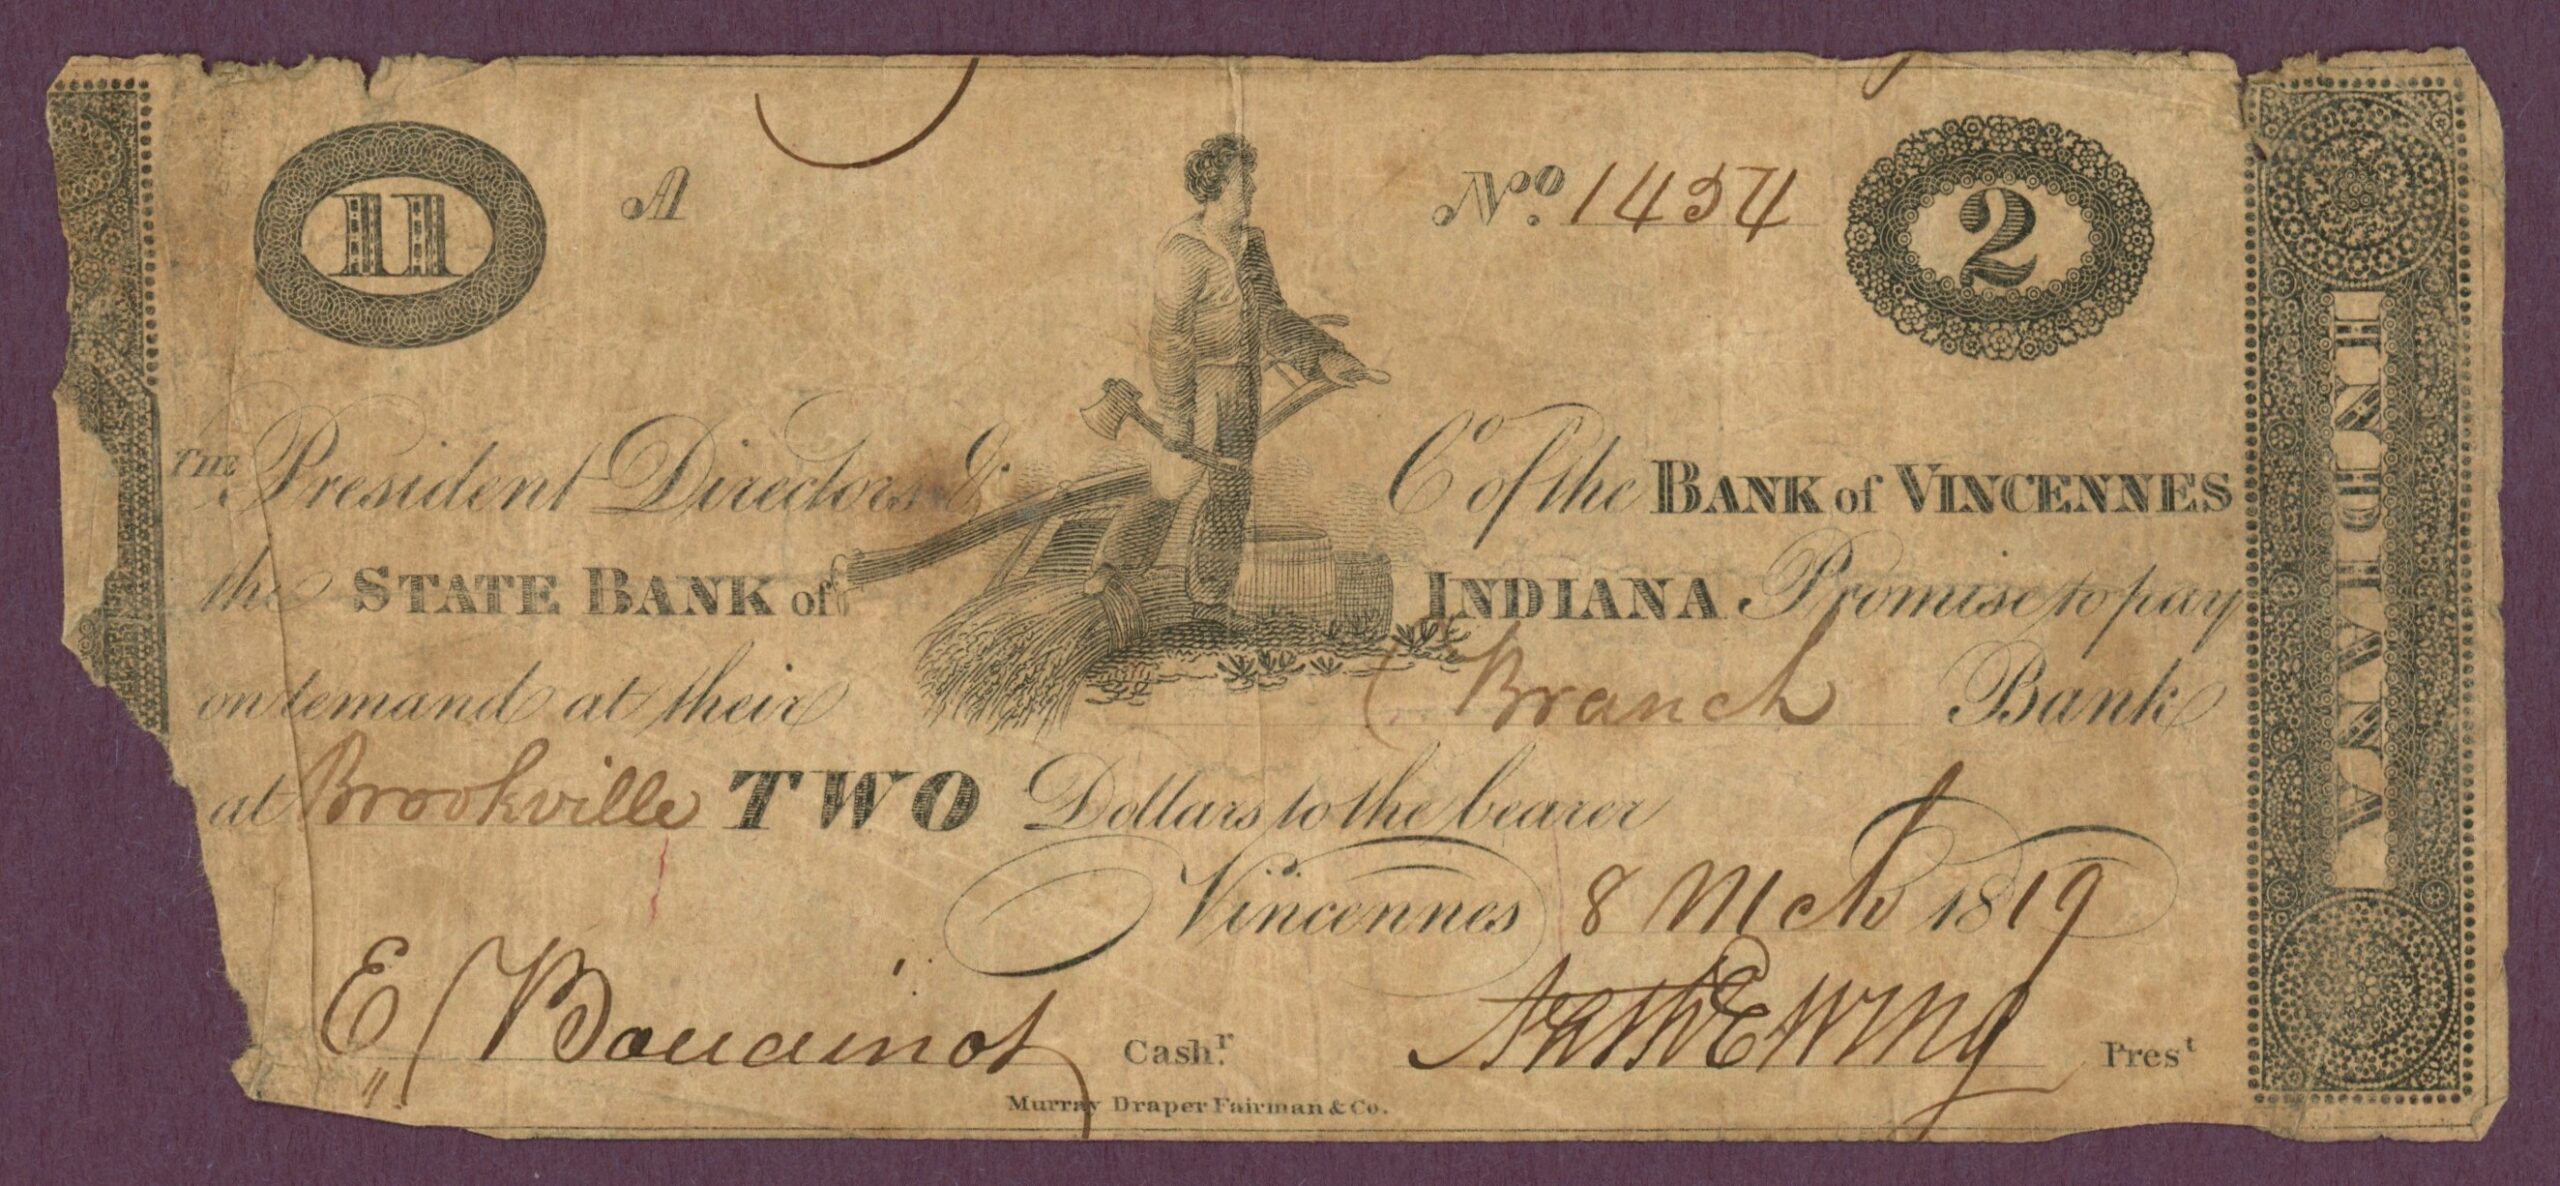 II A No. 1454 2
THE President Directors & Co of the BANK of VINCENNES
the STATE BANK of INDIANA Promise to pay
on demand at their Branch Bank
at Brookville TWO Dollars to the bearer
Vincennes 8 Mch 1819
E Boudinot Cashr. Nath Ewing Prest
Murray Draper Fairman & Co.
INDIANA